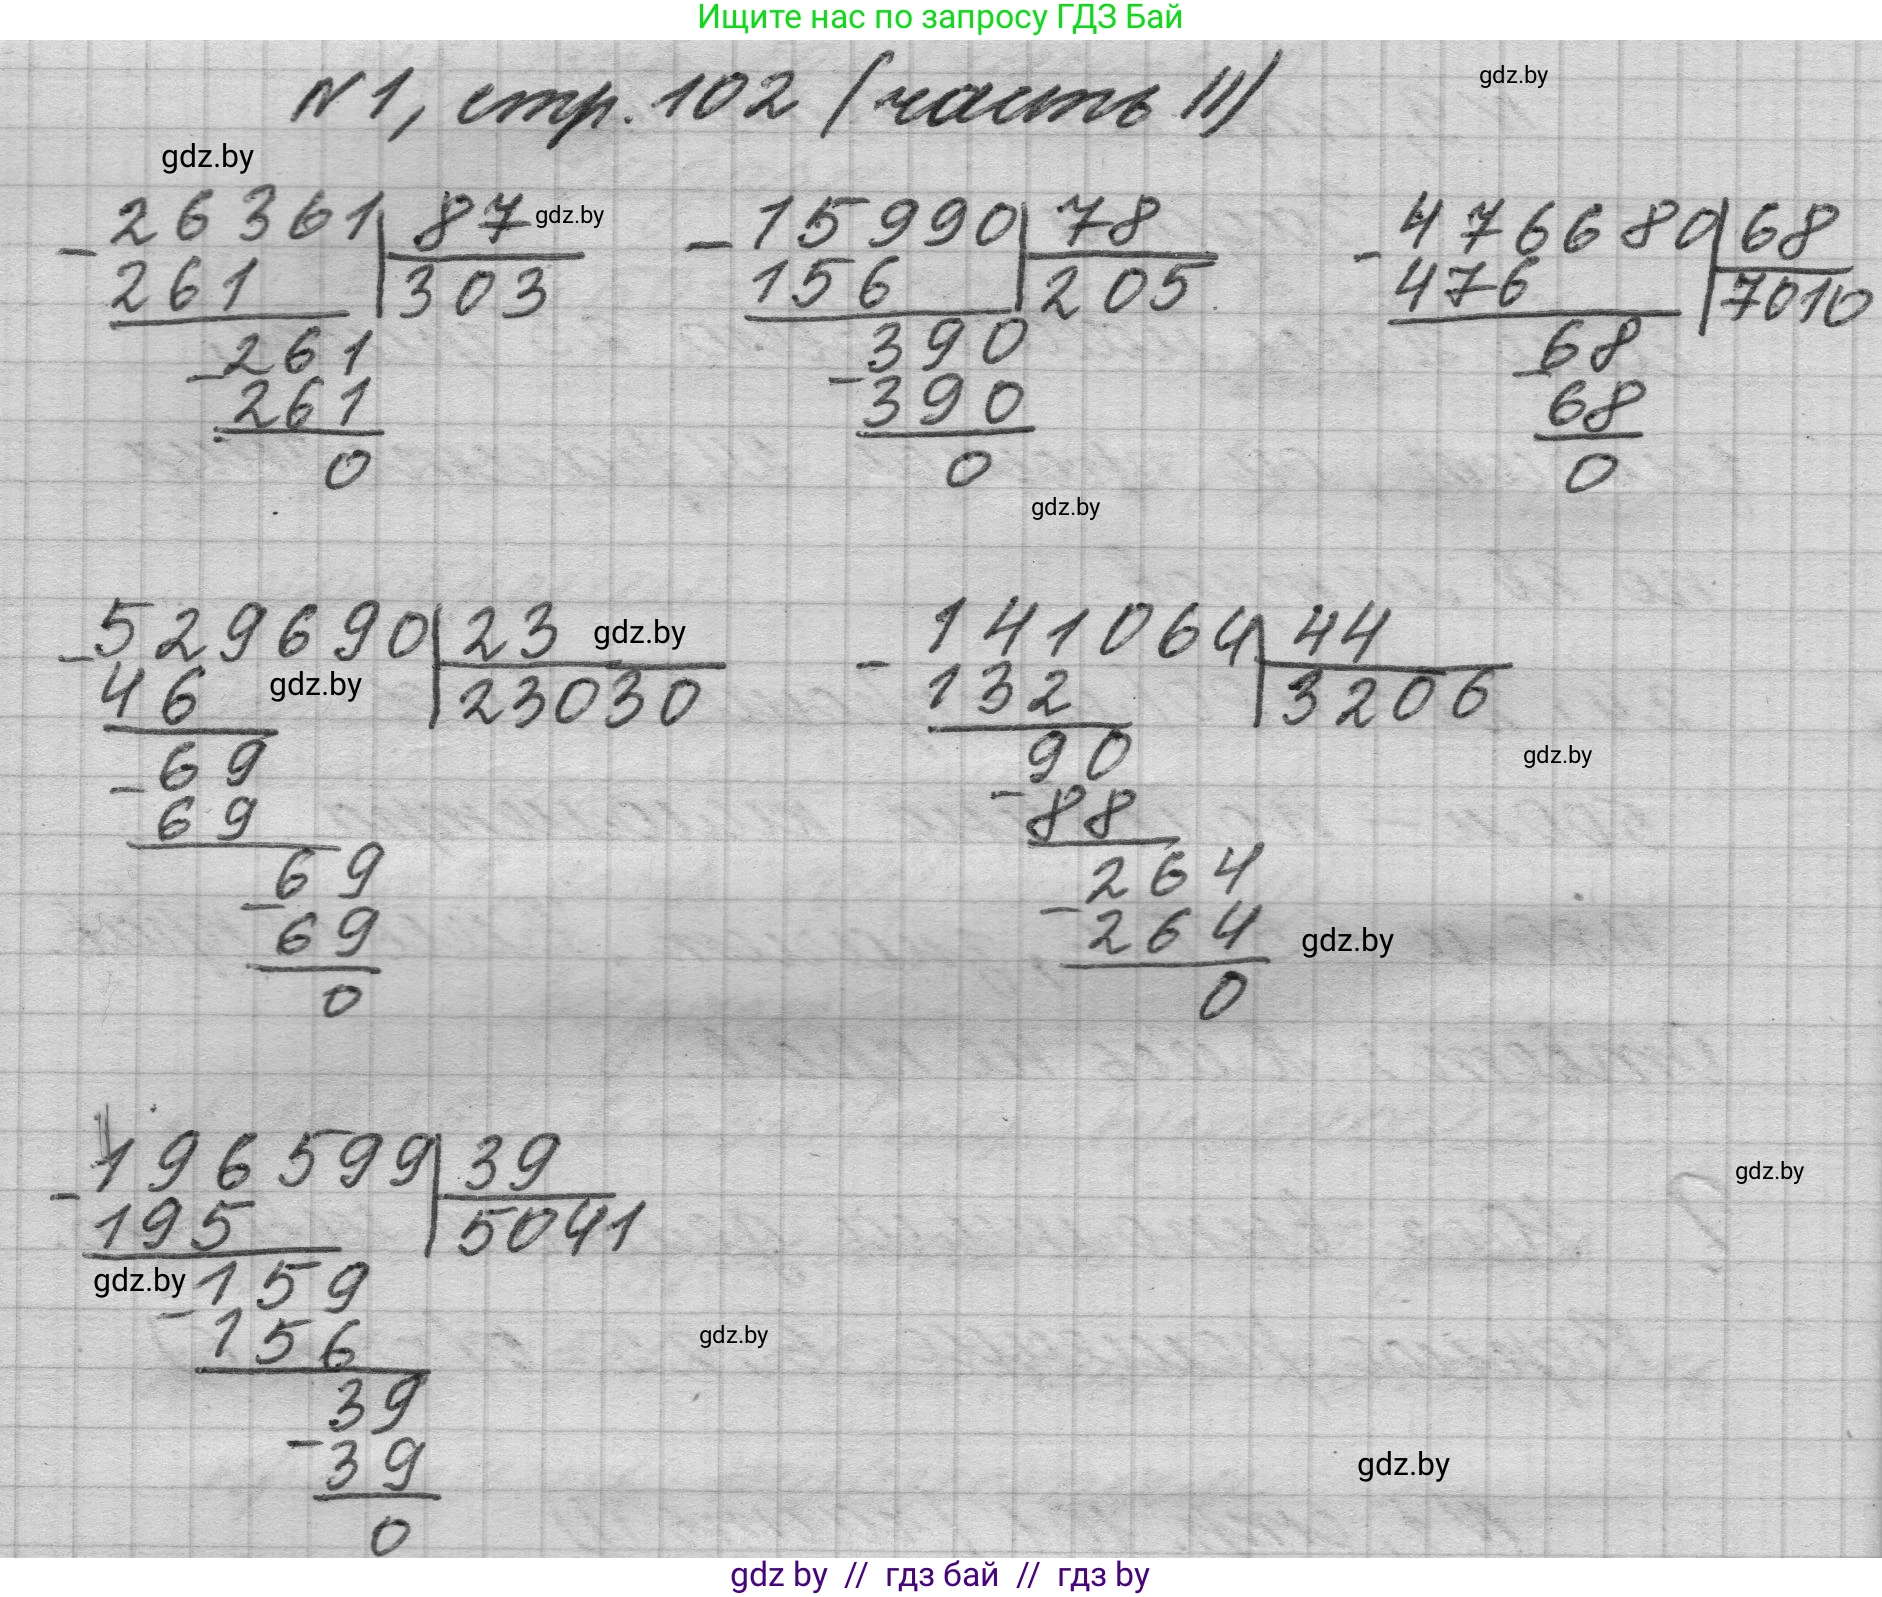 Ищите нас по запросу ГДЗ Бай
№1, стр. 102 (часть II)
gdz.by
gdz.by
26361 | 87
gdz.by
- 261 | 303
261
- 261
0
15990 | 78
- 156 | 205
390
- 390
0
gdz.by
476680 | 68
- 476 | 7010
68
- 68
0
529690 | 23
gdz.by
- 46 | 23030
gdz.by
69
- 69
69
- 69
0
141064 | 44
- 132 | 3206
90
- 88
264
- 264
0
gdz.by
gdz.by
196599 | 39
- 195 | 5041
gdz.by
159
- 156
39
- 39
0
gdz.by
gdz.by
gdz.by
gdz by // гдз бай // гдз by